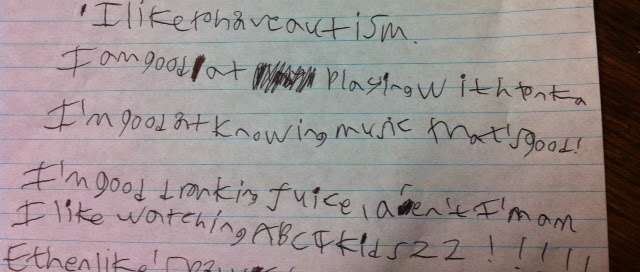 I like to have autism.
I am good at playing with tonka
I'm good at knowing music that's good!
I'm good dranking juice, aren't I'm am
I like watching ABC4Kids22!!!!!
Ethen like